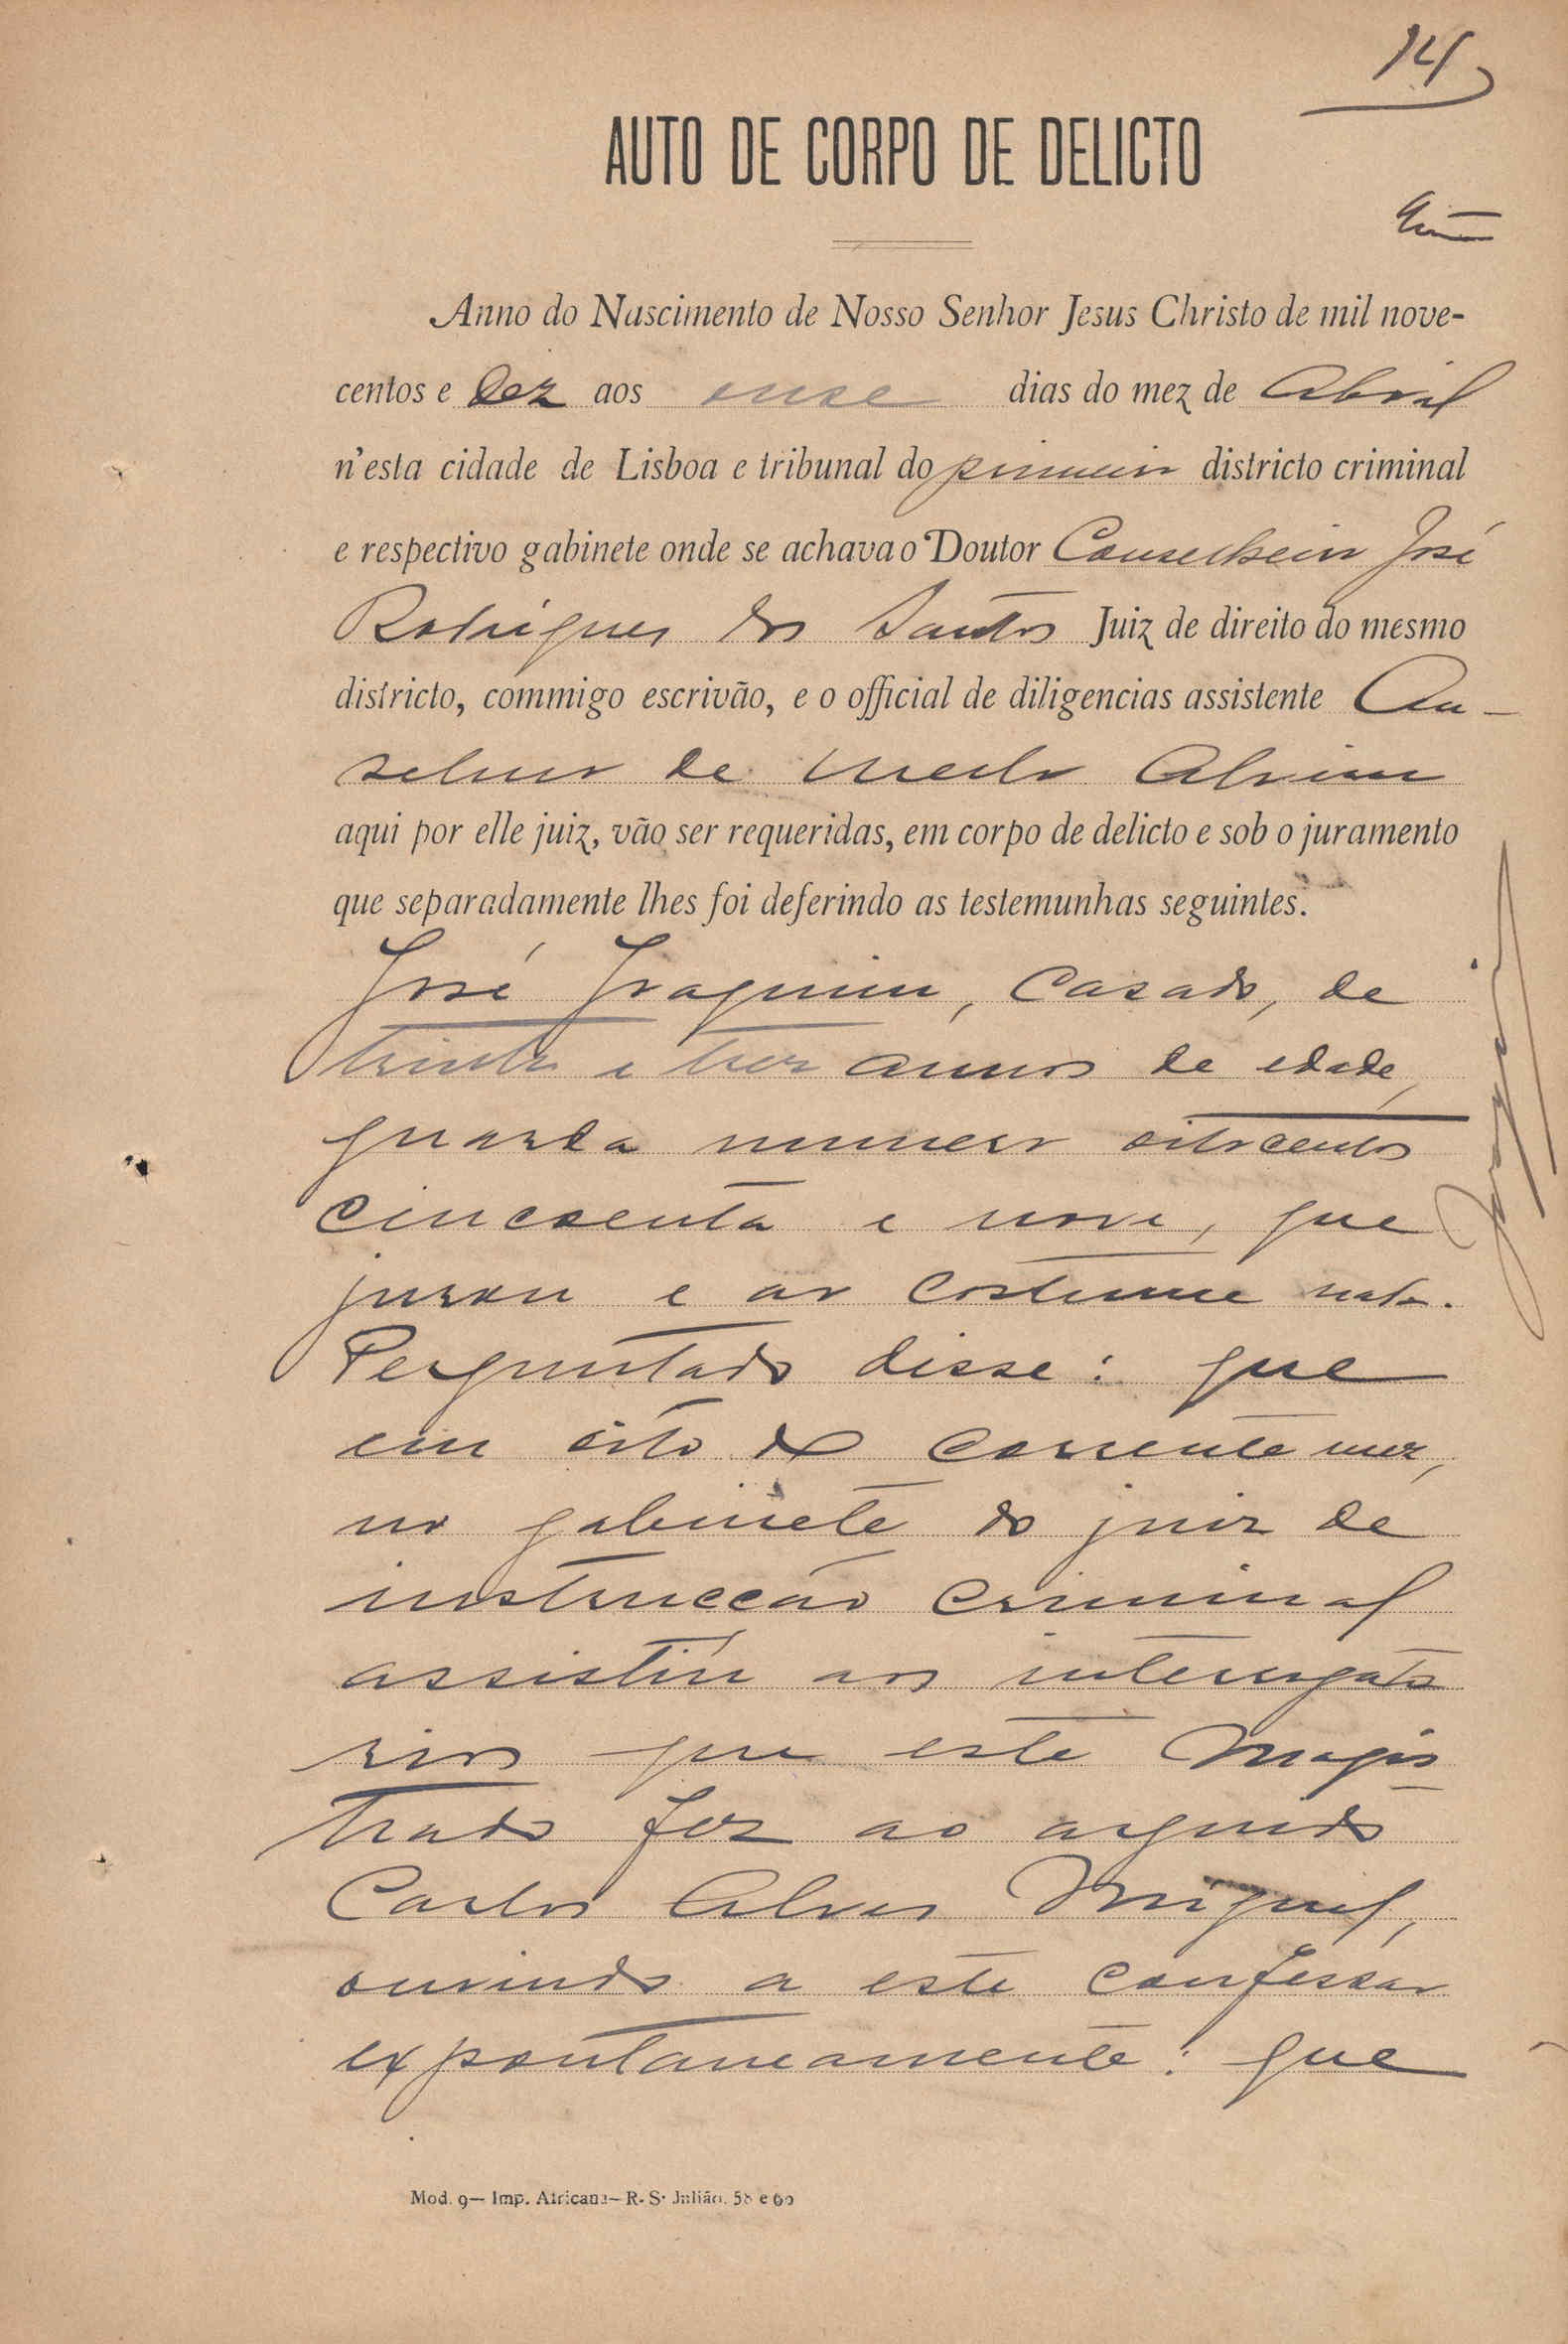 14
AUTO DE CORPO DE DELICTO
Anno do Nascimento de Nosso Senhor Jesus Christo de mil nove-
centos e Dez aos onse dias do mez de Abril
n'esta cidade de Lisboa e tribunal do primeiro districto criminal
e respectivo gabinete onde se achava o Doutor Conselheiro José
Rodrigues dos Santos Juiz de direito do mesmo
districto, commigo escrivão, e o official de diligencias assistente An-
selmo de Mello Alvim
aqui por elle juiz, vão ser requeridas, em corpo de delicto e sob o juramento
que separadamente lhes foi deferindo as testemunhas seguintes.
José Joaquim, casado, de
trinta e trez annos de edade,
guarda numero oitocentos
cincoenta e nove, que
jurou e ao costume nada.
Perguntado disse: que
em oito do corrente mez,
no gabinete do juiz de
instrucção criminal
assistiu aos interrogato
rios que este Magis
trado fez ao arguido
Carlos Alves Miguel,
ouvindo a este confessar
expontaneamente: que
Mod. 9— Imp. Africana— R. S. Julião, 58 e 60